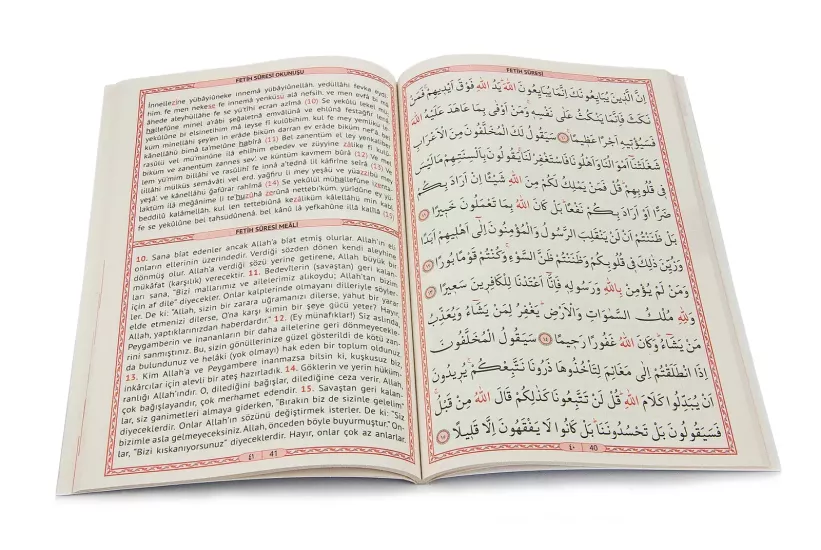 FETİH SÛRESİ
اِنَّ الَّذ۪ينَ يُبَايِعُونَكَ اِنَّمَا يُبَايِعُونَ اللّٰهَۜ يَدُ اللّٰهِ فَوْقَ اَيْد۪يهِمْۚ فَمَنْ
نَكَثَ فَاِنَّمَا يَنْكُثُ عَلٰى نَفْسِه۪ۚ وَمَنْ اَوْفٰى بِمَا عَاهَدَ عَلَيْهُ اللّٰهَ
فَسَيُؤْت۪يهِ اَجْرًا عَظ۪يمًا ﴿١٠﴾ سَيَقُولُ لَكَ الْمُخَلَّفُونَ مِنَ الْاَعْرَابِ
شَغَلَتْنَٓا اَمْوَالُنَا وَاَهْلُونَا فَاسْتَغْفِرْ لَنَاۚ يَقُولُونَ بِاَلْسِنَتِهِمْ مَا لَيْسَ
ف۪ي قُلُوبِهِمْۜ قُلْ فَمَنْ يَمْلِكُ لَكُمْ مِنَ اللّٰهِ شَيْـًٔا اِنْ اَرَادَ بِكُمْ
ضَرًّا اَوْ اَرَادَ بِكُمْ نَفْعًاۜ بَلْ كَانَ اللّٰهُ بِمَا تَعْمَلُونَ خَب۪يرًا ﴿١١﴾
بَلْ ظَنَنْتُمْ اَنْ لَنْ يَنْقَلِبَ الرَّسُولُ وَالْمُؤْمِنُونَ اِلٰٓى اَهْل۪يهِمْ اَبَدًا
وَزُيِّنَ ذٰلِكَ ف۪ي قُلُوبِكُمْ وَظَنَنْتُمْ ظَنَّ السَّوْءِۚ وَكُنْتُمْ قَوْمًا بُورًا ﴿١٢﴾
وَمَنْ لَمْ يُؤْمِنْ بِاللّٰهِ وَرَسُولِه۪ فَاِنَّٓا اَعْتَدْنَا لِلْكَافِر۪ينَ سَع۪يرًا ﴿١٣﴾
وَلِلّٰهِ مُلْكُ السَّمٰوَاتِ وَالْاَرْضِۜ يَغْفِرُ لِمَنْ يَشَٓاءُ وَيُعَذِّبُ
مَنْ يَشَٓاءُۜ وَكَانَ اللّٰهُ غَفُورًا رَح۪يمًا ﴿١٤﴾ سَيَقُولُ الْمُخَلَّفُونَ
اِذَا انْطَلَقْتُمْ اِلٰى مَغَانِمَ لِتَأْخُذُوهَا ذَرُونَا نَتَّبِعْكُمْۚ يُر۪يدُونَ
اَنْ يُبَدِّلُوا كَلَامَ اللّٰهِۜ قُلْ لَنْ تَتَّبِعُونَا كَذٰلِكُمْ قَالَ اللّٰهُ مِنْ قَبْلُۚ
فَسَيَقُولُونَ بَلْ تَحْسُدُونَنَاۜ بَلْ كَانُوا لَا يَفْقَهُونَ اِلَّا قَل۪يلًا ﴿١٥﴾
٤٠ 40
FETİH SÛRESİ OKUNUŞU
İnnellezîne yübâyiûneke innemâ yübâyiûnellâh. yedüllâhi fevka eydî
him. fe men nekese fe innemâ yenküsü alâ nefsih. ve men evfâ bi mâ
âhede aleyhüllâhe fe se yü'tîhi ecran azîmâ (10) Se yekûlü lekel mü
hallefûne minel a'râbi şeğaletnâ emvâlünâ ve ehlûnâ festağfir lenâ.
yekûlûne bi elsinetihim mâ leyse fî kulûbihim. kul fe mey yemlikü le
kum minellâhi şeyen in erâde biküm darran ev erâde biküm nef'â. bel
kânellâhü bimâ ta'melûne habîrâ (11) Bel zanentüm el ley yenkaliber
rasûlü vel mü'minûne ilâ ehlîhim ebedev ve züyyine zâlike fî kulû
biküm ve zanentüm zannes sev'. ve küntüm kavmem bûrâ (12) Ve mel
lem yü'mim billâhi ve rasûlihî fe innâ a'tednâ lil kâfirîne seîrâ (13) Ve
lillâhi mülküs semâvâti vel erd. yağfiru li mey yeşâü ve yüazzibü mey
yeşâ'. ve kânellâhü ğafûrar rahîmâ (14) Se yekûlül mühallefûne izenta
laktüm ilâ meğânime li te'huzûhâ zerûnâ nettebi'küm. yürîdûne ey yü
beddilû kalâmellâh. kul len tettebiûnâ kezâliküm kâlellâhü min kabl.
fe se yekûlûne bel tahsudûnenâ. bel kânû lâ yefkahûne illâ kalîlâ (15)
FETİH SÛRESİ MEÂLİ
10. Sana biat edenler ancak Allah'a biat etmiş olurlar. Allah'ın eli
onların ellerinin üzerindedir. Verdiği sözden dönen kendi aleyhine
dönmüş olur. Allah'a verdiği sözü yerine getirene, Allah büyük bir
mükâfat (karşılık) verecektir. 11. Bedevîlerin (savaştan) geri kalan-
ları sana, "Bizi mallarımız ve ailelerimiz alıkoydu; Allah'tan bizim
için af dile" diyecekler. Onlar kalplerinde olmayanı dilleriyle söyler-
ler. De ki: "Allah, sizin bir zarara uğramanızı dilerse, yahut bir yarar
elde etmenizi dilerse, O'na karşı kimin bir şeye gücü yeter? Hayır,
Allah, yaptıklarınızdan haberdardır." 12. (Ey münafıklar!) Siz aslında,
Peygamberin ve inananların bir daha ailelerine geri dönmeyecekle-
rini sanmıştınız. Bu, sizin gönüllerinize güzel gösterildi de kötü zan-
da bulundunuz ve helâki (yok olmayı) hak eden bir toplum oldunuz.
13. Kim Allah'a ve Peygambere inanmazsa bilsin ki, kuşkusuz biz,
inkârcılar için alevli bir ateş hazırladık. 14. Göklerin ve yerin hüküm-
ranlığı Allah'ındır. O, dilediğini bağışlar, dilediğine ceza verir. Allah,
çok bağışlayandır, çok merhamet edendir. 15. Savaştan geri kalan-
lar, siz ganimetleri almaya giderken, "Bırakın biz de sizinle gelelim"
diyeceklerdir. Onlar Allah'ın sözünü değiştirmek isterler. De ki: "Siz
bizimle asla gelmeyeceksiniz. Allah, önceden böyle buyurmuştur." On-
lar, "Bizi kıskanıyorsunuz" diyeceklerdir. Hayır, onlar çok az anlarlar.
٤١ 41